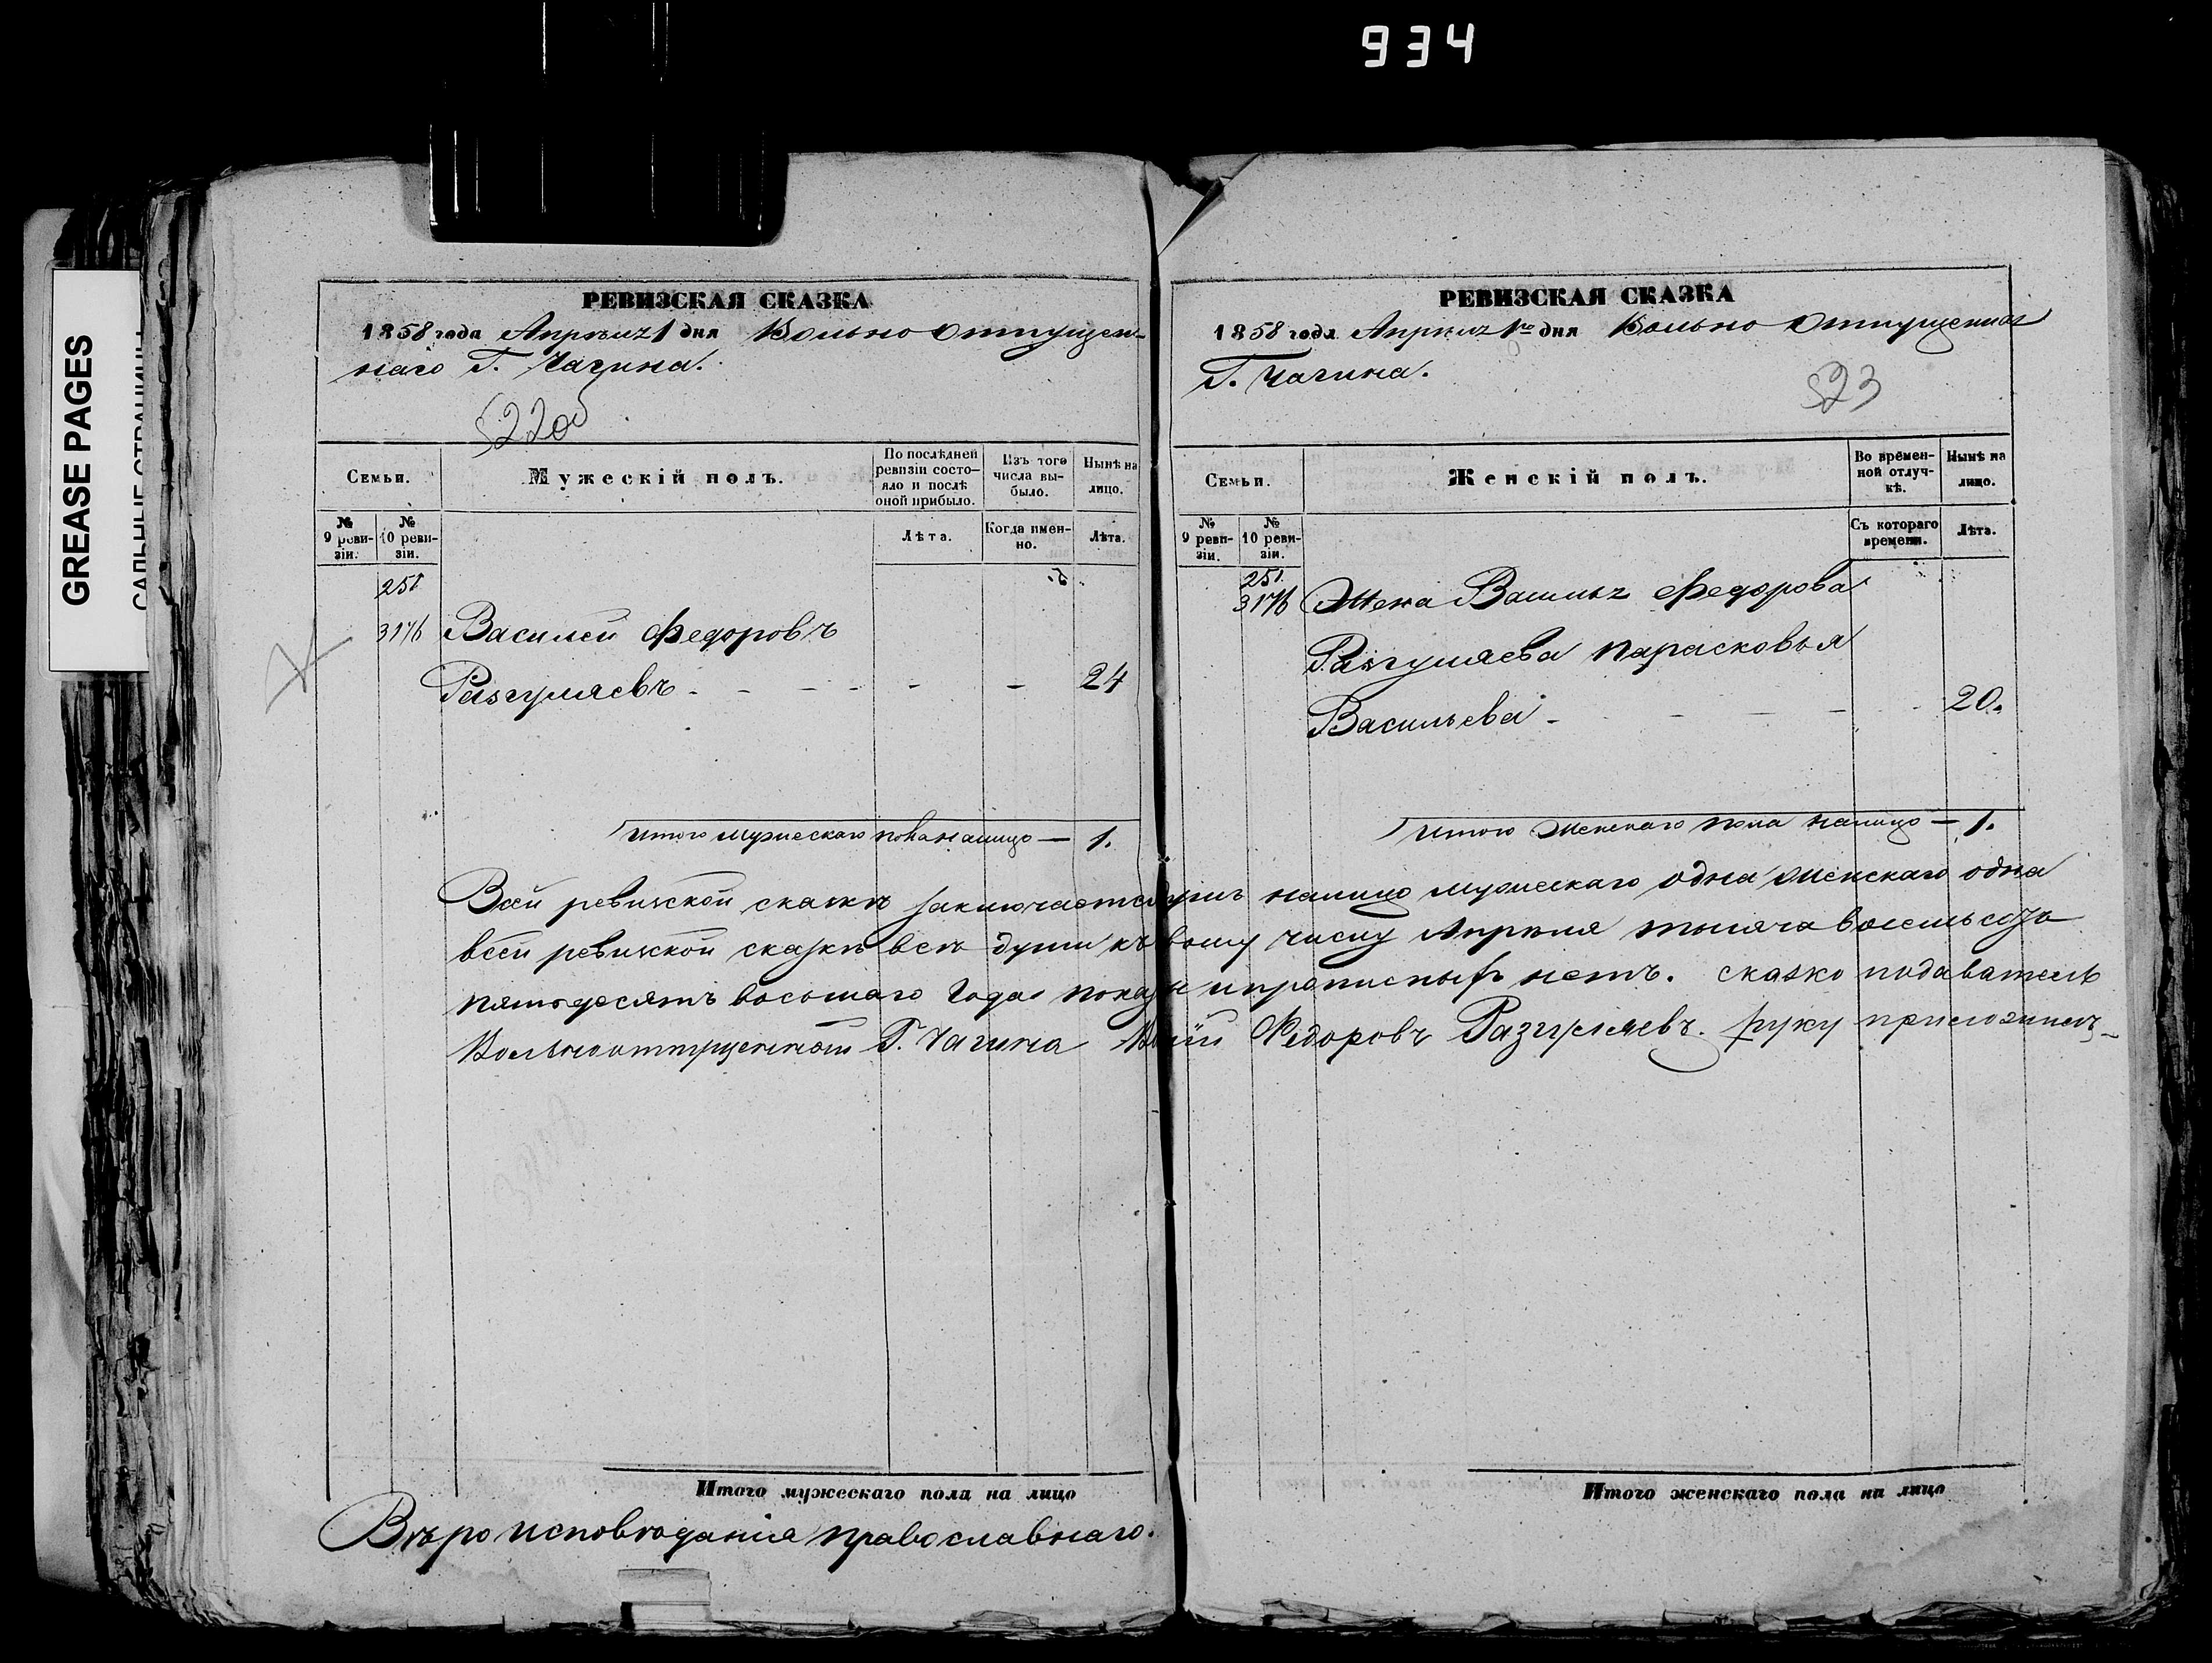 934
GREASE PAGES
САЛЬНЫЕ СТРАНИЦЫ
РЕВИЗСКАЯ СКАЗКА
1858 года Апрѣля 1 дня Вольно отпущен-
наго Г. Чагина.
522об
Семьи.
Мужескій полъ.
По послѣдней ревизіи состояло и послѣ оной прибыло.
Изъ того числа выбыло.
Нынѣ на лицо.
№ 9 ревизіи.
№ 10 ревизіи.
Лѣта.
Когда именно.
Лѣта.
251
3176 Василей Федоровъ
Разгуляевъ - - - - - - 24
Итого мужескаго пола налицо — 1.
РЕВИЗСКАЯ СКАЗКА
1858 года Апрѣля 1го дня Вольно Отпущенная
Г. Чагина.
523
Семьи.
Женскій полъ.
Во временной отлучкѣ.
Нынѣ на лицо.
№ 9 ревизіи.
№ 10 ревизіи.
Съ котораго времени.
Лѣта.
251
3176 Жена Василья Федорова
Разгуляева Парасковья
Васильева - - - - 20.
Итого Женскаго пола налицо — 1.
Всей ревизской сказкѣ заключается душъ налицо мужескаго одна женскаго одна
всей ревизской сказкѣ всѣ души къ вому числу Апрѣля тысяча восемьсотъ
пятьдесятъ восьмаго Года и прописныхъ нетъ. сказко подаватель
Вольноотпущенной Г. Чагина Федоровъ Разгуляевъ. руку приложилъ-
Итого мужескаго пола на лицо
Итого женскаго пола на лицо
Вѣро исповѣданія православнаго.